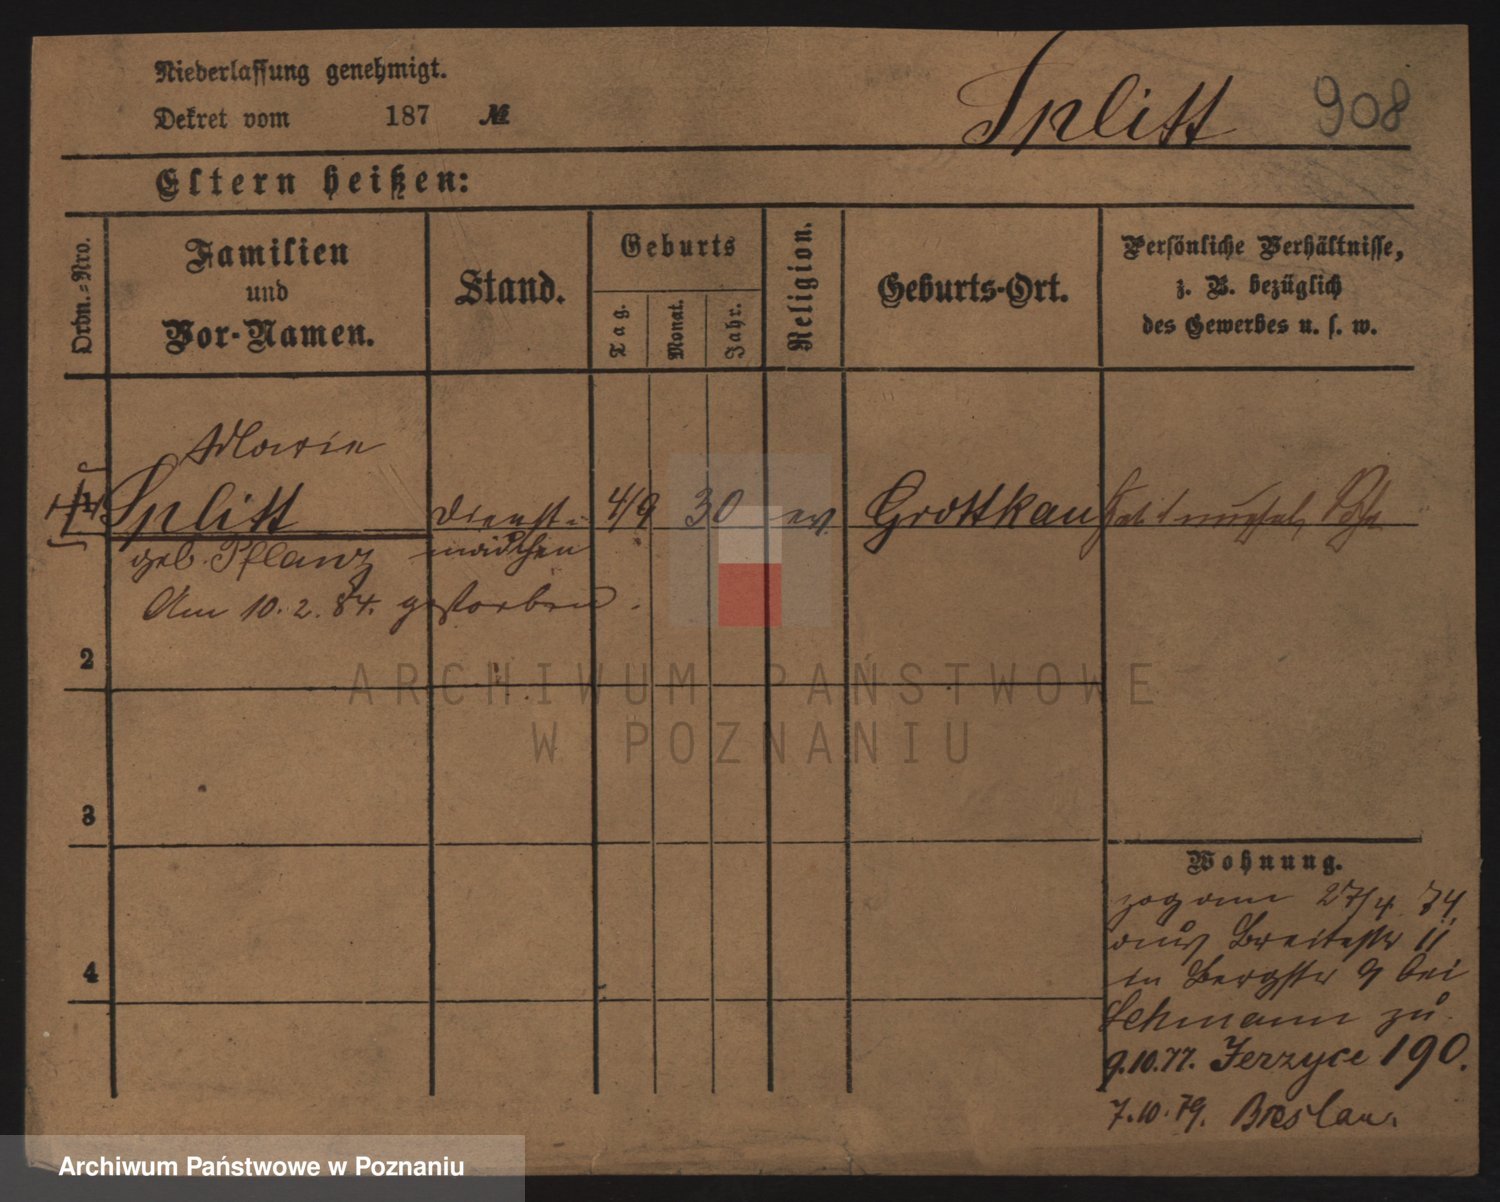 Niederlassung genehmigt.
Dekret vom 187 №
Splitt 908
Eltern heißen:
Ordn.=Nro.
Familien
und
Vor-Namen.
Stand.
Geburts
Tag.
Monat.
Jahr.
Religion.
Geburts-Ort.
Persönliche Verhältnisse,
z. B. bezüglich
des Gewerbes u. s. w.
Marie
1 Splitt Dienst- 4/9 30 ev Grottkau
geb. Pflanz mädchen
Am 10. 2. 84. gestorben.
2
3
4
Wohnung.
zog am 27/4. 74
aus Breitestr 11
in Bergstr 9 bei
Lehmann zu
9.10.77. Jerzyce 190.
7.10.79. Breslau.
ARCHIWUM PAŃSTWOWE
W POZNANIU
Archiwum Państwowe w Poznaniu